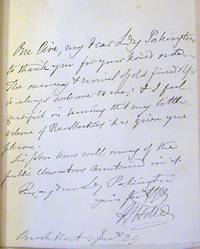 me, my dear Lady Pakington
to thank you for your kind note
The memory & revival of old friendship
is always welcome to me, & I feel
gratified in learning that my little
volume of Recollections has given you
pleasure.
Sir John knows well many of the
public characters mentioned in it
Lady Pakington
yours
Brook Street